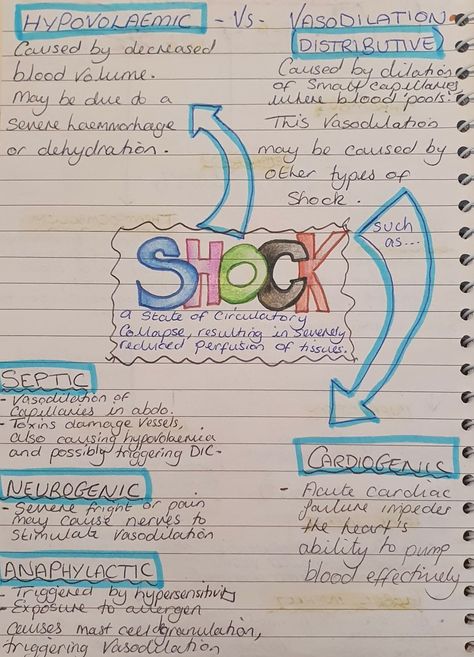 HYPOVOLAEMIC - Vs - VASODILATION
(DISTRIBUTIVE)
Caused by decreased
blood volume.
May be due to a
severe haemorrhage
or dehydration.
Caused by dilation
of small capillaries
where blood 'pools'.
This Vasodilation
may be caused by
other types of
Shock.
such
as...
SHOCK
a State of Circulatory
Collapse, resulting in severely
reduced perfusion of tissues.
SEPTIC
- Vasodilation of
capillaries in abdo.
- Toxins damage vessels,
also causing hypovolaemia
and possibly triggering DIC-
NEUROGENIC
- Severe fright or pain
may cause nerves to
stimulate vasodilation
ANAPHYLACTIC
- Triggered by hypersensitivity
- Exposure to allergen
causes mast cell degranulation,
triggering vasodilation
CARDIOGENIC
- Acute cardiac
failure impedes
the heart's
ability to pump
blood effectively